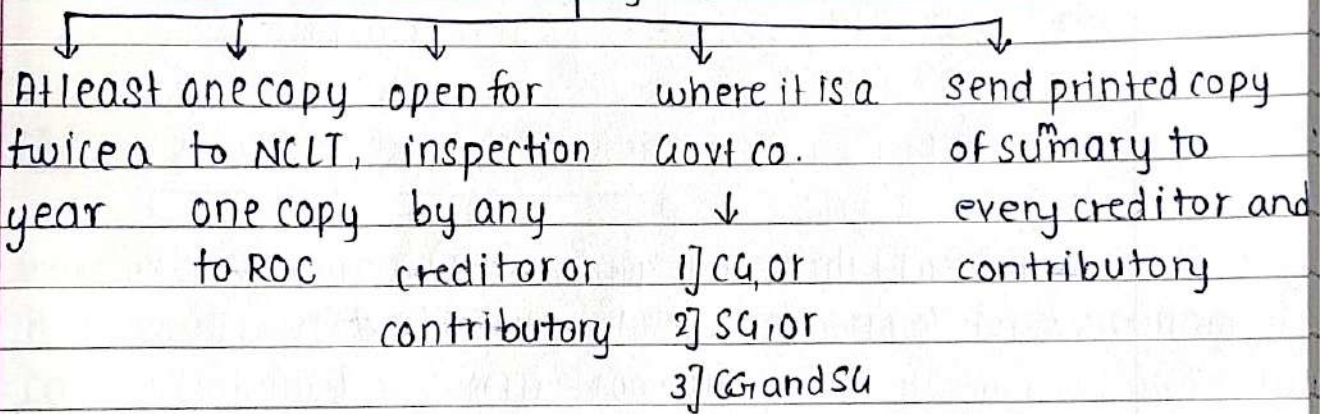 At least
twice a
year
one copy
to NCLT,
one copy
to ROC
open for
inspection
by any
creditor or
contributory
where it is a
Govt co.
↓
1] CG, or
2] SG, or
3] CG and SG
send printed copy
of summary to
every creditor and
contributory